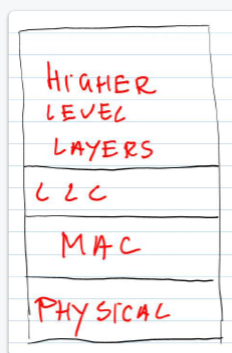 HIGHER
LEVEL
LAYERS
LLC
MAC
PHYSICAL